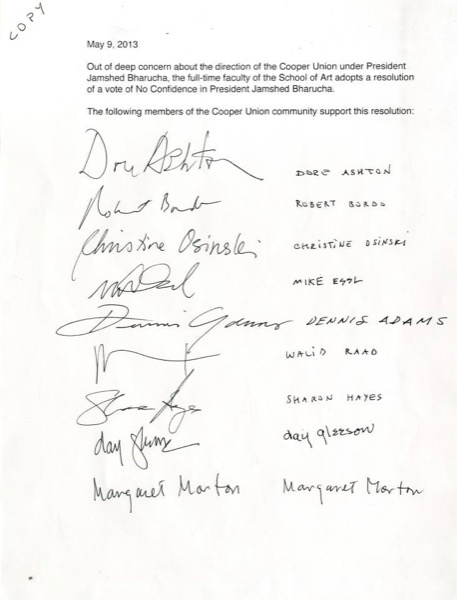 COPY
May 9, 2013
Out of deep concern about the direction of the Cooper Union under President
Jamshed Bharucha, the full-time faculty of the School of Art adopts a resolution
of a vote of No Confidence in President Jamshed Bharucha.
The following members of the Cooper Union community support this resolution:
Dore Ashton DORE ASHTON
Robert Bordo ROBERT BORDO
Christine Osinski CHRISTINE OSINSKI
MIKE ESSL
Dennis Adams DENNIS ADAMS
WALID RAAD
Sharon Hayes SHARON HAYES
day gleeson day gleeson
Margaret Morton Margaret Morton